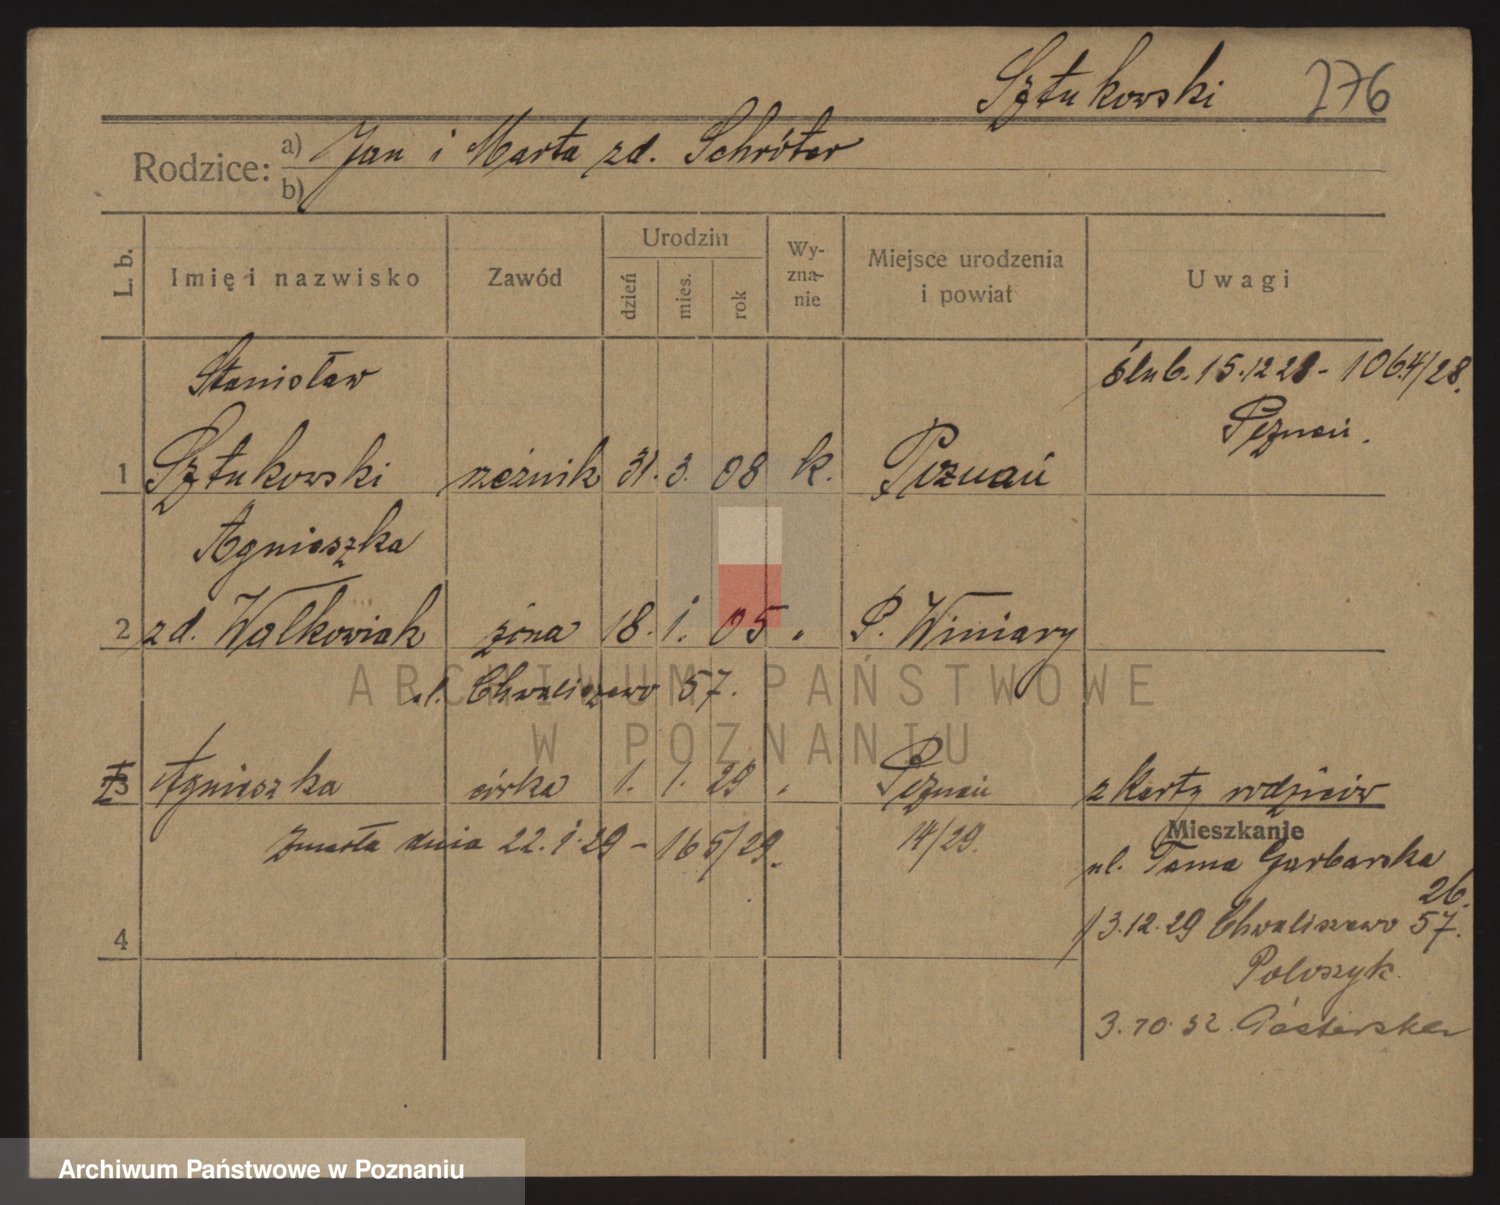 Sztukowski 276
Rodzice: a) Jan i Marta zd. Schröter
b)
L. b.
Imię i nazwisko
Zawód
Urodzin
dzień
mies.
rok
Wy-
zna-
nie
Miejsce urodzenia
i powiat
Uwagi
Stanisław ślub. 15.12 28 - 1064/28.
Poznań.
1 Sztukowski rzeźnik 31. 3. 08 k. Poznań
Agnieszka
2 zd. Walkowiak żona 18. 1. 05 " P. Winiary
ul. Chwaliszewo 57.
ARCHIWUM PAŃSTWOWE
W POZNANIU
3 Agnieszka córka 1. 1. 29 " Poznań z karty rodziców
zmarła dnia 22.1.29 - 165/29. 14/29.
Mieszkanie
ul. Tama Garbarska
26.
13.12.29 Chwaliszewo 57.
4
3.10.32
Archiwum Państwowe w Poznaniu